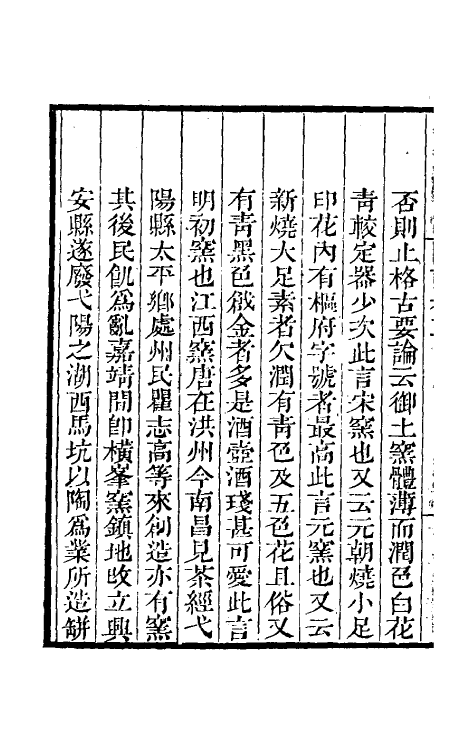 否則止格古要論云御土窯體薄而潤色白花
青較定器少次此言宋窯也又云元朝燒小足
印花內有樞府字號者最高此言元窯也又云
新燒大足素者欠潤有靑色及五色花且俗又
有靑黑色戧金者多是酒壺酒琖甚可愛此言
明初窯也江西窯唐在洪州今南昌見茶經弋
陽縣太平鄉處州民瞿志高等來創造亦有窯
其後民飢爲亂嘉靖間卽橫峯窯鎮地改立興
安縣遂廢弋陽之湖西馬坑以陶爲業所造缾